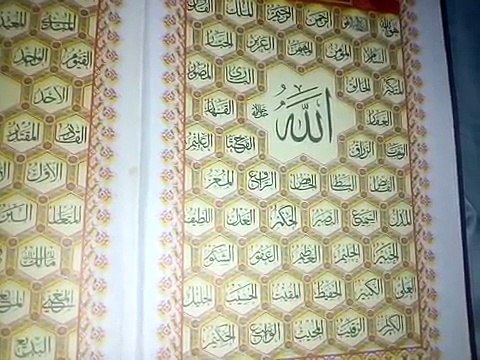 هو الله الرحمن الرحيم الملك
السلام المؤمن المهيمن العزيز الجبار
المتكبر الخالق البارئ المصور
الله جل جلاله
الغفار القهار
الوهاب الرزاق الفتاح العليم
القابض الباسط الخافض الرافع المعز
المذل السميع البصير الحكم العدل اللطيف
الخبير الحليم العظيم الغفور الشكور
العلي الكبير الحفيظ المقيت الحسيب الجليل
الكريم الرقيب المجيب الواسع الحكيم
القيوم الواجد
الأحد
القادر المقتدر
الأول
المتعالي البر
مالك